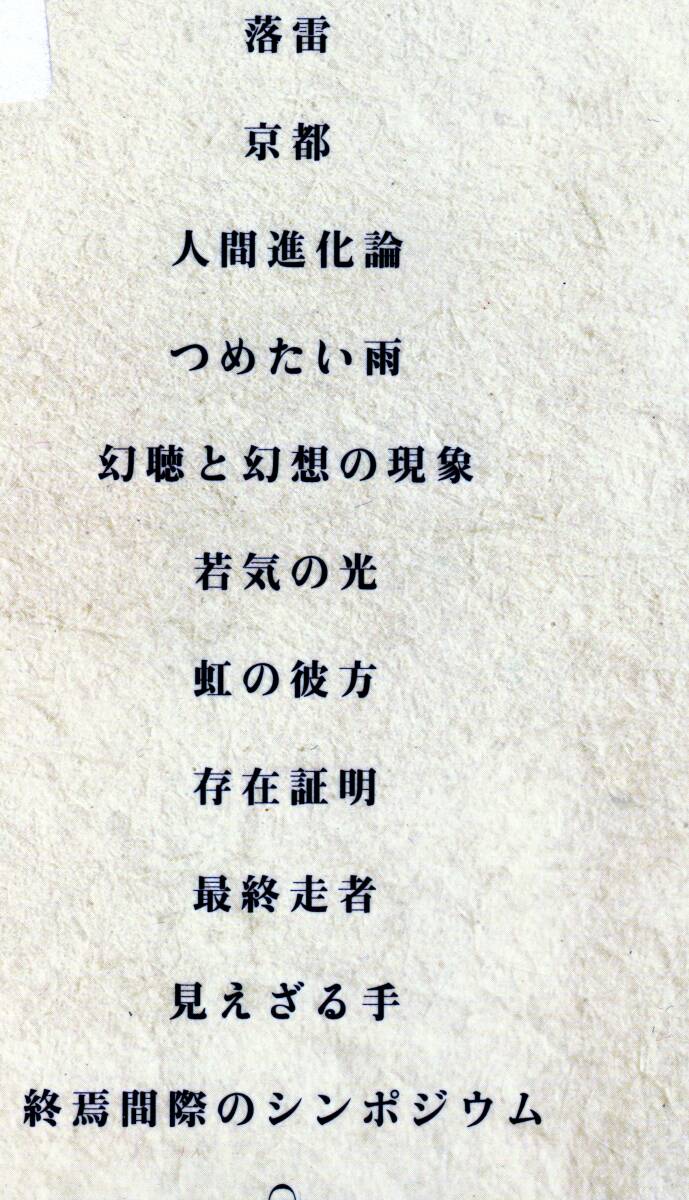 落雷
京都
人間進化論
つめたい雨
幻聴と幻想の現象
若気の光
虹の彼方
存在証明
最終走者
見えざる手
終焉間際のシンポジウム